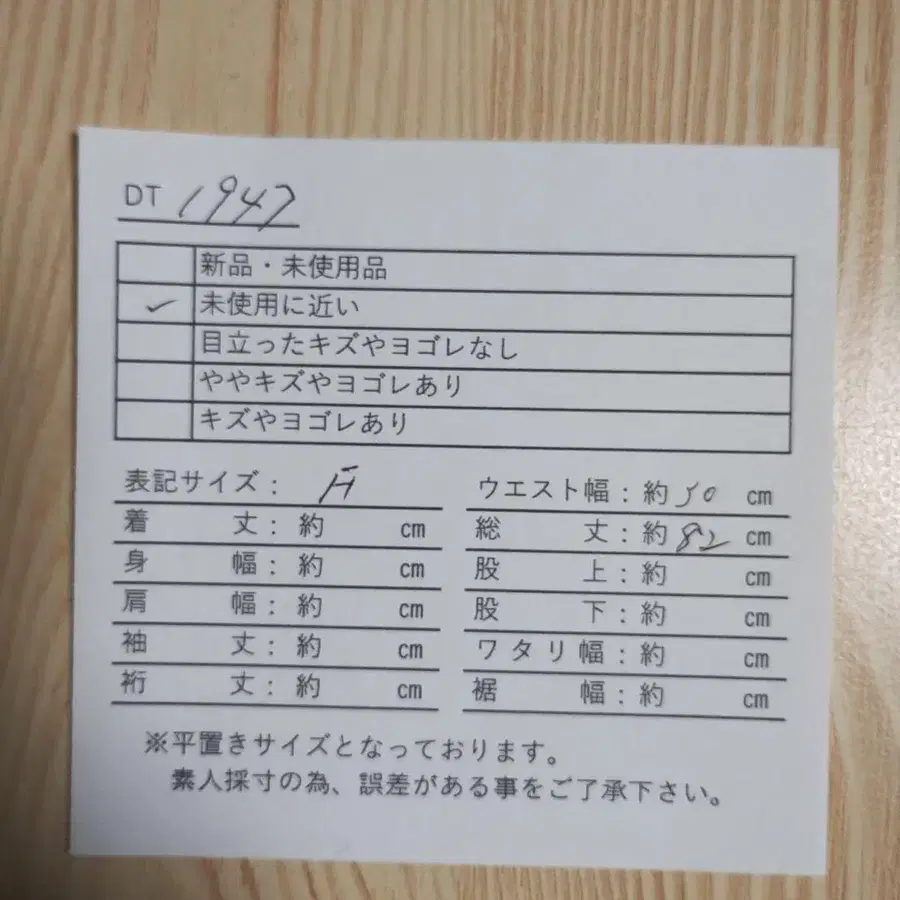 DT 1947
新品・未使用品
✓ 未使用に近い
目立ったキズやヨゴレなし
ややキズやヨゴレあり
キズやヨゴレあり
表記サイズ：
着丈：約 cm
身幅：約 cm
肩幅：約 cm
袖丈：約 cm
裄丈：約 cm
ウエスト幅：約50 cm
総丈：約82 cm
股上：約 cm
股下：約 cm
ワタリ幅：約 cm
裾幅：約 cm
※平置きサイズとなっております。
素人採寸の為、誤差がある事をご了承下さい。